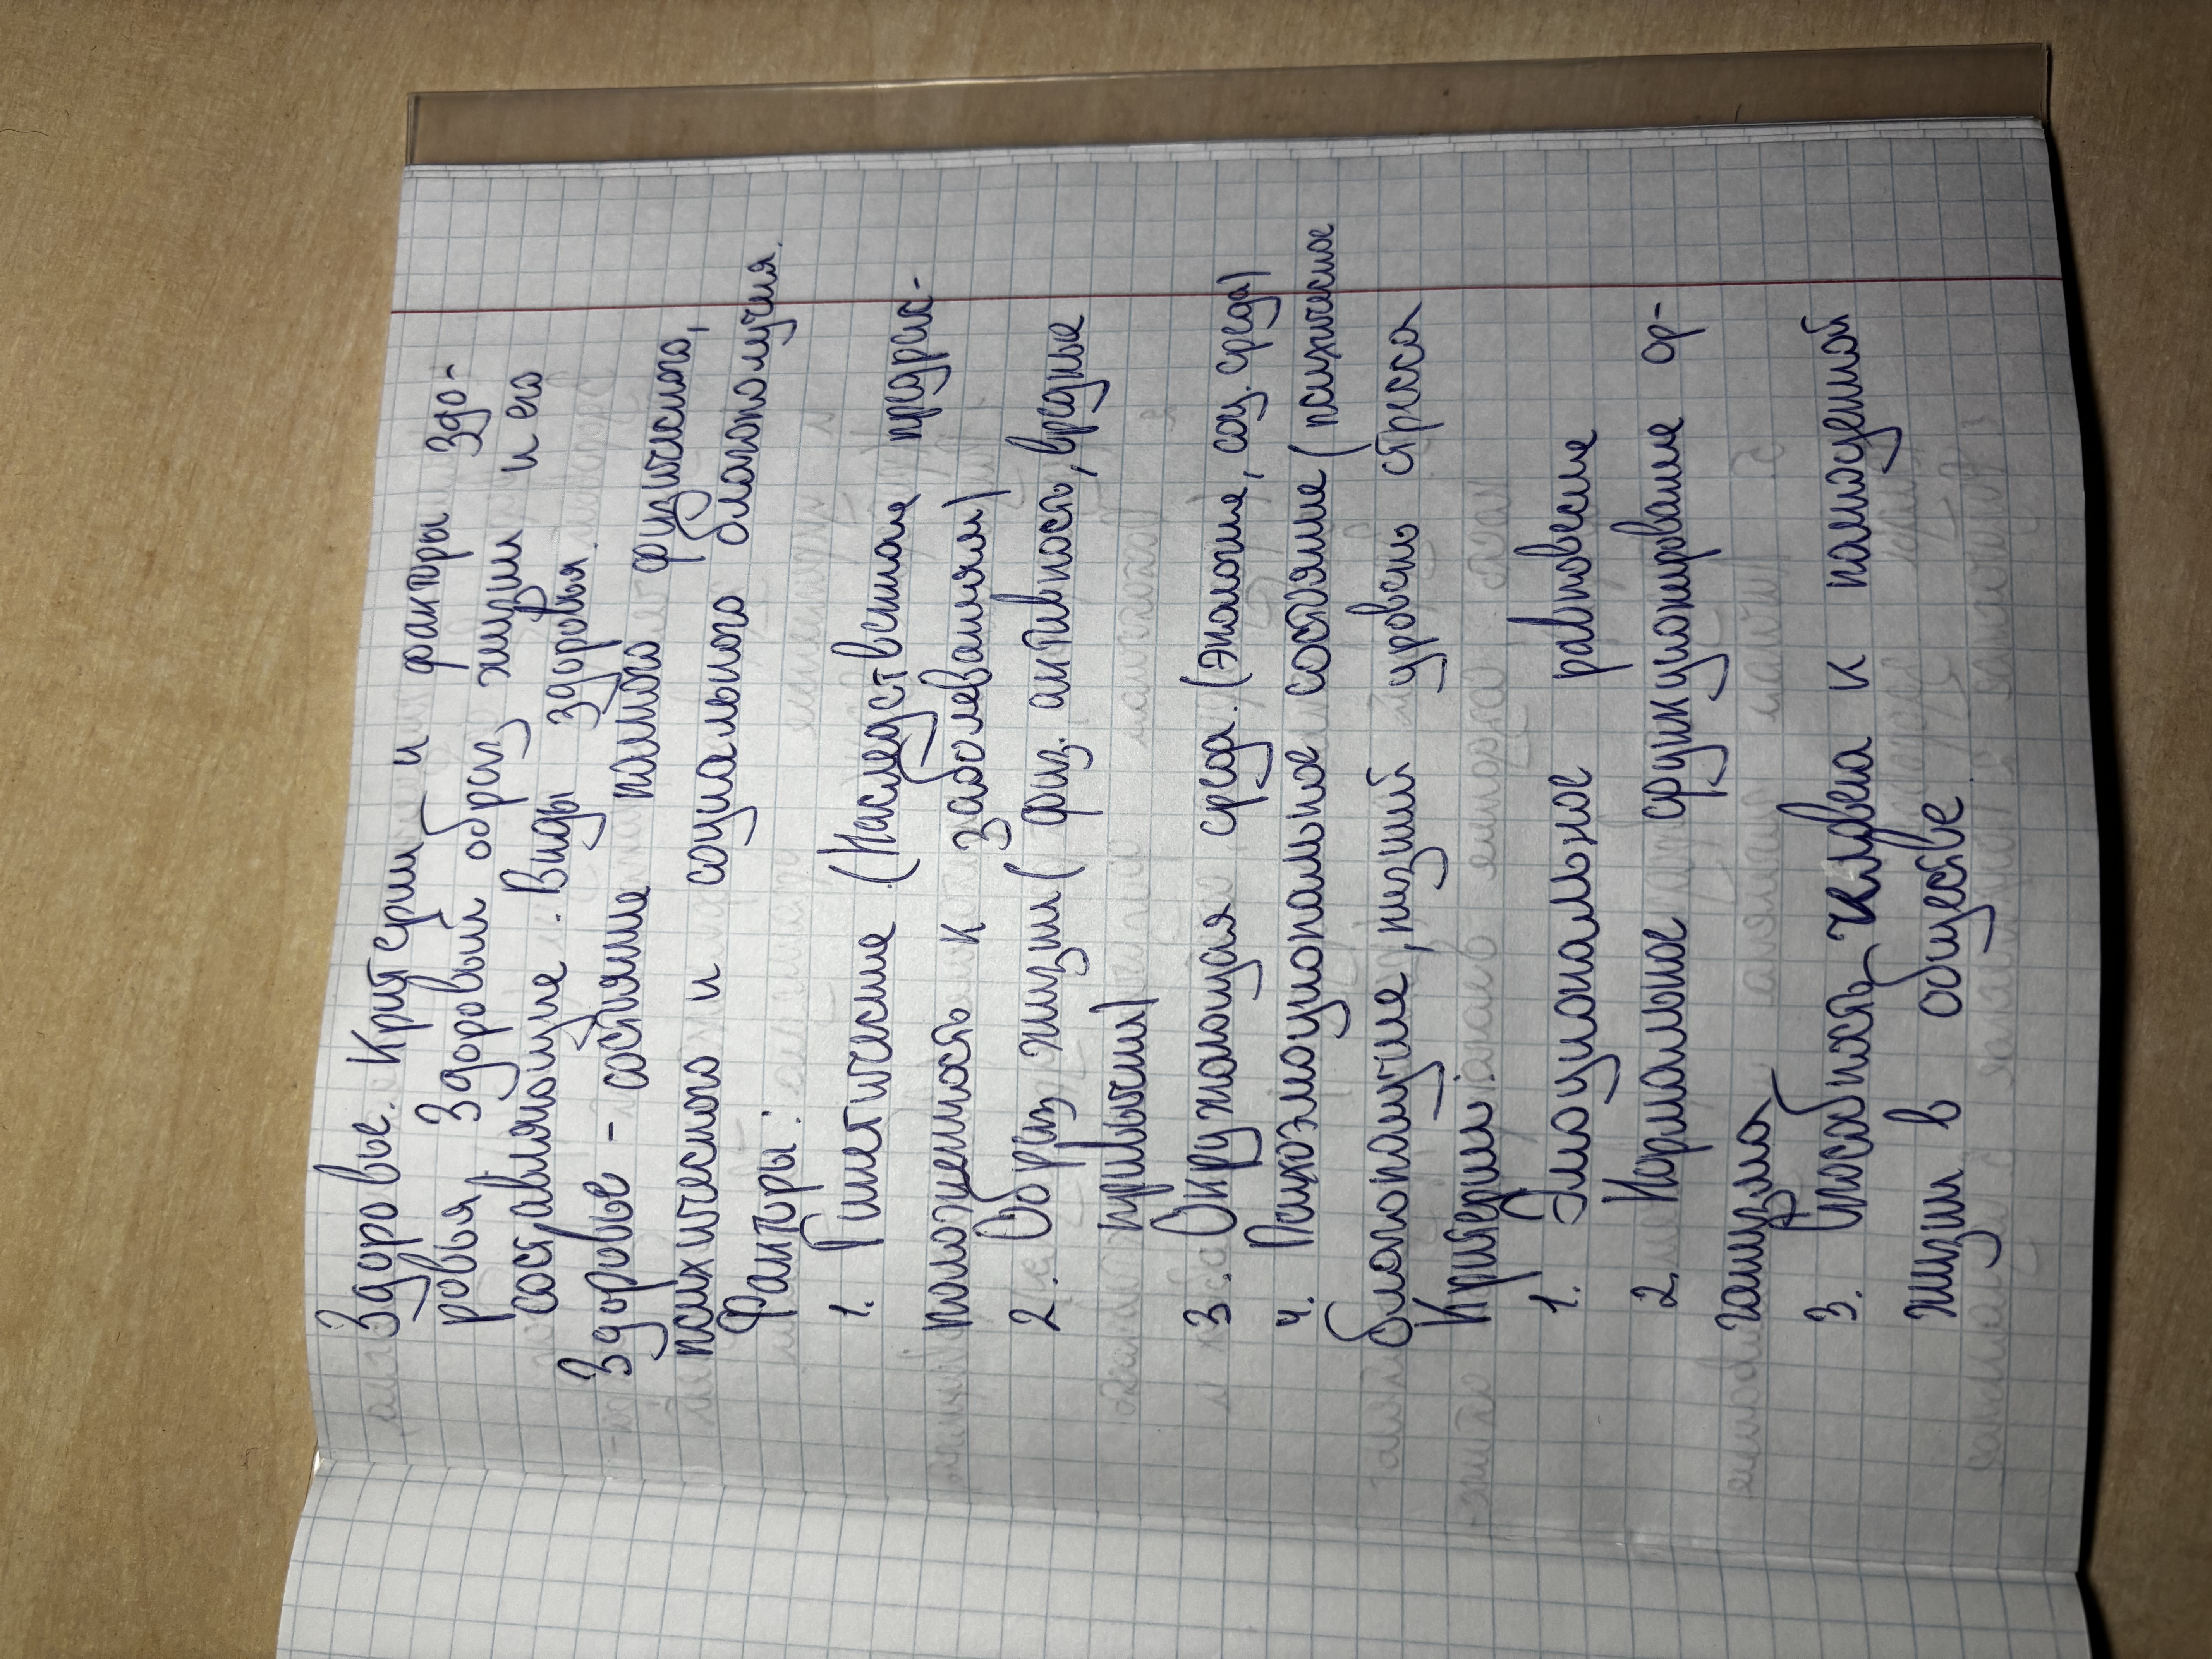 Здоровье. Критерии и факторы здо-
ровья. Здоровый образ жизни и его
составляющие. Виды здоровья.
Здоровье - состояние полного физического,
психического и социального благополучия.
Факторы:
1. Генетические (Наследственная предрас-
положенность к заболеваниям)
2. Образ жизни (физ. активность, вредные
привычки)
3. Окружающая среда. (экология, соц. среда)
4. Психоэмоциональное состояние (психическое
благополучие, низкий уровень стресса
Критерии:
1. Эмоциональное равновесие
2. Нормальное функционирование ор-
ганизма
3. Способность человека к полноценной
жизни в обществе